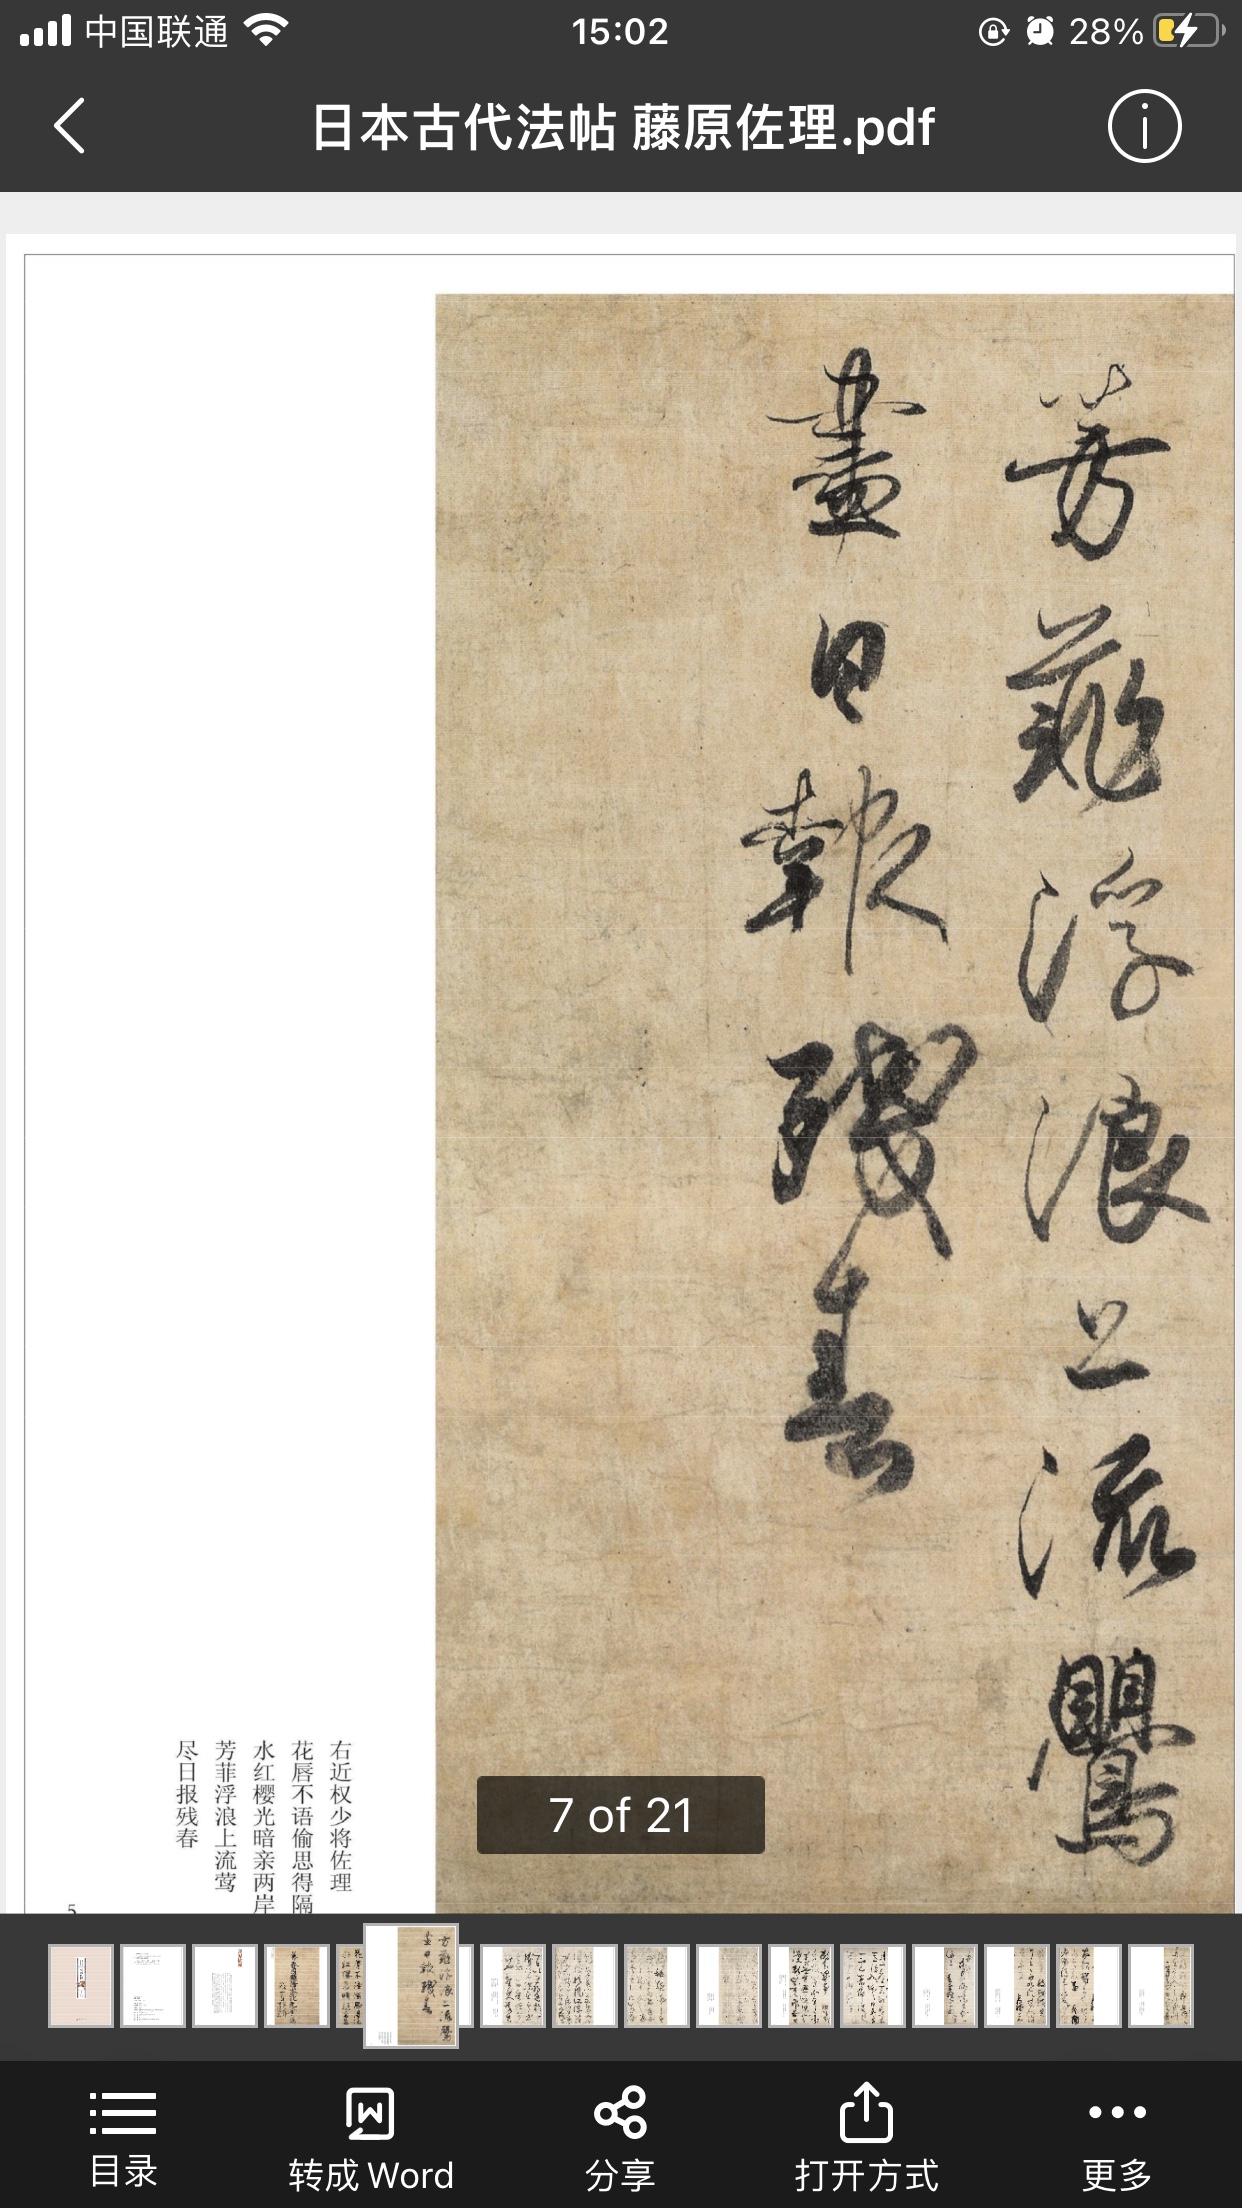 中国联通
15:02
28%
日本古代法帖 藤原佐理.pdf
芳菲浮浪上流鶯
盡日報殘春
右近权少将佐理
花唇不语偷思得隔
水红樱光暗亲两岸
芳菲浮浪上流莺
尽日报残春
5
7 of 21
目录
转成 Word
分享
打开方式
更多